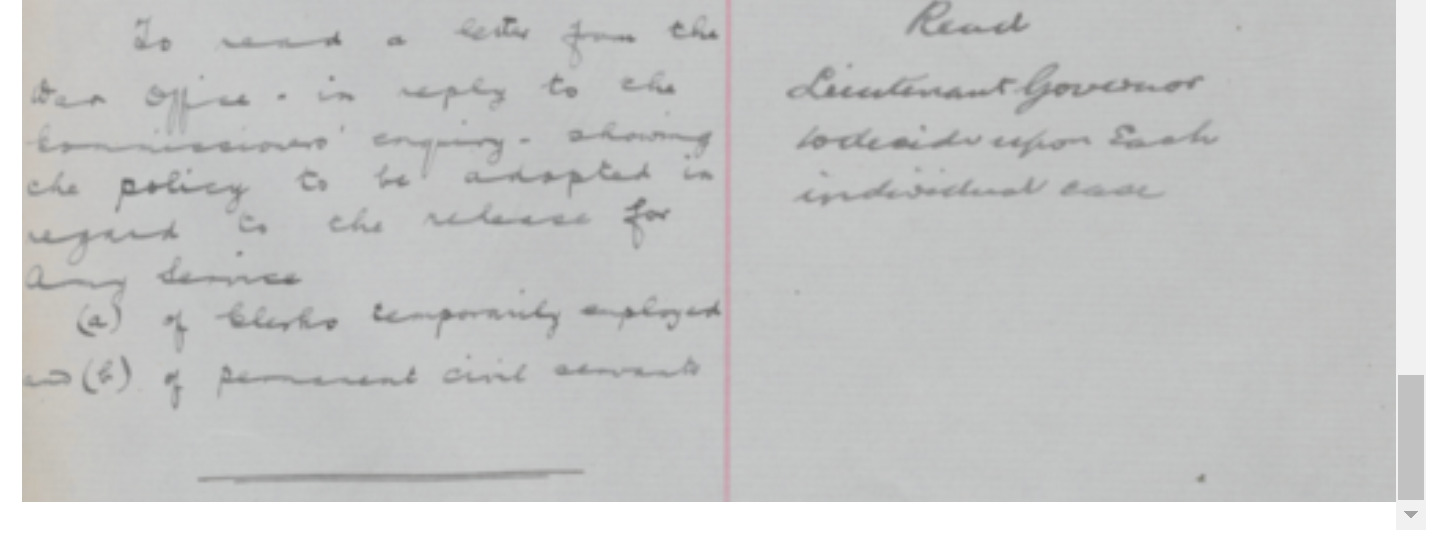 To read a letter from the
War Office - in reply to the
Commissioners' enquiry - showing
the policy to be adopted in
regard to the release for
Army Service
(a) of Clerks temporarily employed
and (b) of permanent civil servants
Read
Lieutenant Governor
to decide upon Each
individual case